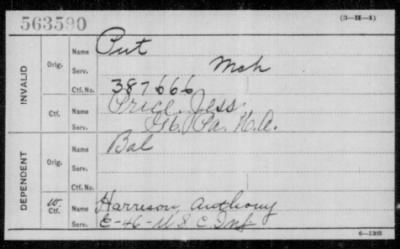 563590
(3—H—1)
INVALID
Orig.
Name
Put
Serv.
Mch
Ctf. No.
387666
Ctf.
Name
Price Jess
Serv.
Pa. H.A.
DEPENDENT
Orig.
Name
Bal
Serv.
Ctf. No.
Ctf.
Name
Harrison, Anthony
Serv.
E-46-U S C Inf